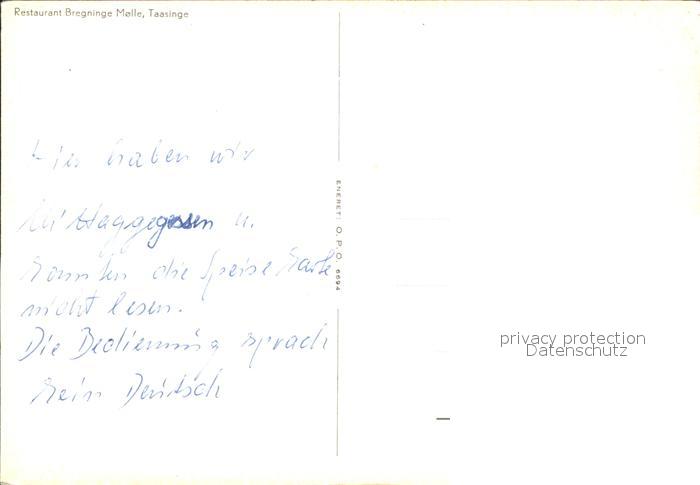 Restaurant Bregninge Mølle, Taasinge
Hier haben wir
Mittaggegessen u.
konnten die Speise Karte
nicht lesen.
Die Bedienung sprach
kein Deutsch
ENERET: O.P.O. 6694
privacy protection
Datenschutz